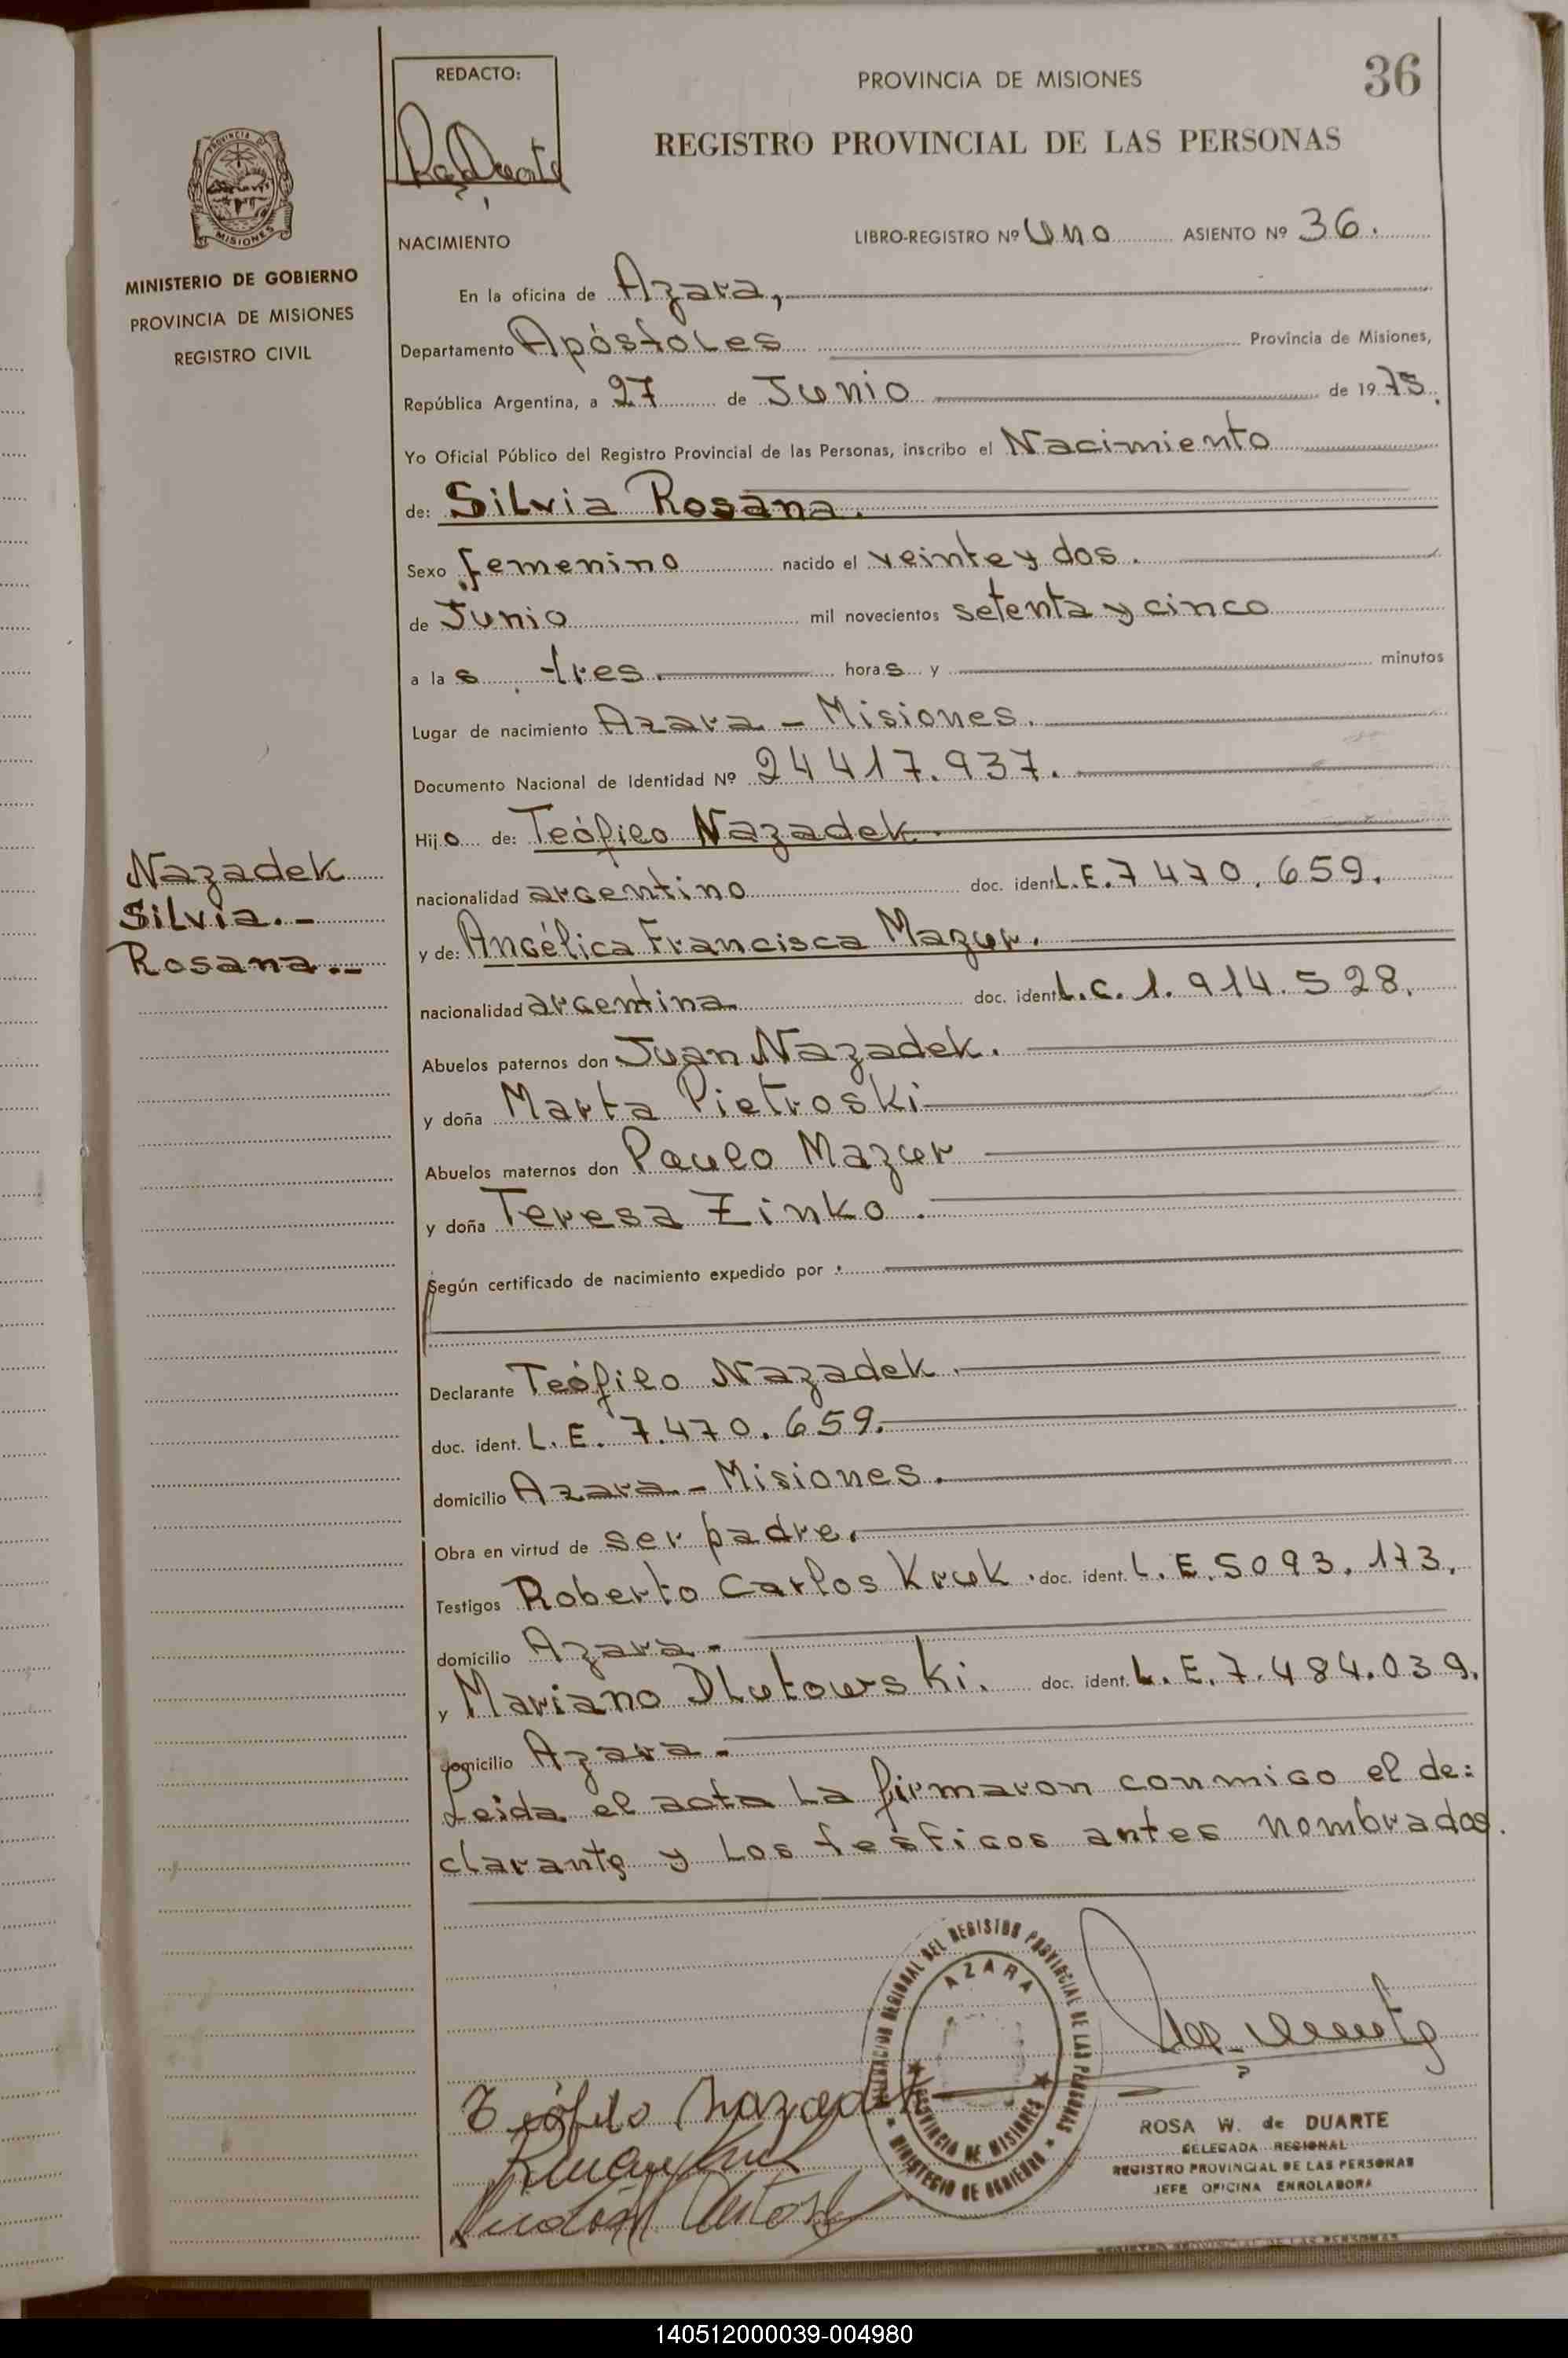 REDACTO:
PROVINCIA DE MISIONES
36
REGISTRO PROVINCIAL DE LAS PERSONAS
PROVINCIA DE
MISIONES
MINISTERIO DE GOBIERNO
PROVINCIA DE MISIONES
REGISTRO CIVIL
NACIMIENTO
LIBRO-REGISTRO Nº Uno ASIENTO Nº 36.
En la oficina de Azara,
Departamento Apóstoles Provincia de Misiones,
República Argentina, a 27 de Junio de 1975.
Yo Oficial Público del Registro Provincial de las Personas, inscribo el Nacimiento
de: Silvia Rosana.
Sexo femenino nacido el veinte y dos.
de Junio mil novecientos setenta y cinco
a las tres. horas y minutos
Lugar de nacimiento Azara - Misiones.
Documento Nacional de Identidad Nº 24417.937.
Hijo de: Teófilo Nazadek
nacionalidad argentino doc. ident L.E. 7470.659.
y de: Angélica Francisca Mazur.
nacionalidad argentina doc. ident L.C. 1.914.528.
Abuelos paternos don Juan Nazadek.
y doña Marta Pietroski
Abuelos maternos don Paulo Mazur
y doña Teresa Zinko.
Según certificado de nacimiento expedido por
Declarante Teófilo Nazadek.
doc. ident. L.E. 7.470.659.
domicilio Azara - Misiones.
Obra en virtud de ser padre.
Testigos Roberto Carlos Kruk. doc. ident. L.E. 5093.173.
domicilio Azara -
y Mariano Dlutowski. doc. ident. L.E. 7.484.039.
domicilio Azara -
Leida el acta la firmaron conmigo el de:
clarante y los testigos antes nombrados.
Nazadek
Silvia.-
Rosana.--
DELEGACION REGIONAL DEL REGISTRO PROVINCIAL DE LAS PERSONAS
AZARA
PROVINCIA DE MISIONES
MINISTERIO DE GOBIERNO
Teófilo Nazadek
ROSA W. de DUARTE
DELEGADA REGIONAL
REGISTRO PROVINCIAL DE LAS PERSONAS
JEFE OFICINA ENROLADORA
REGISTRO PROVINCIAL DE LAS PERSONAS
140512000039-004980